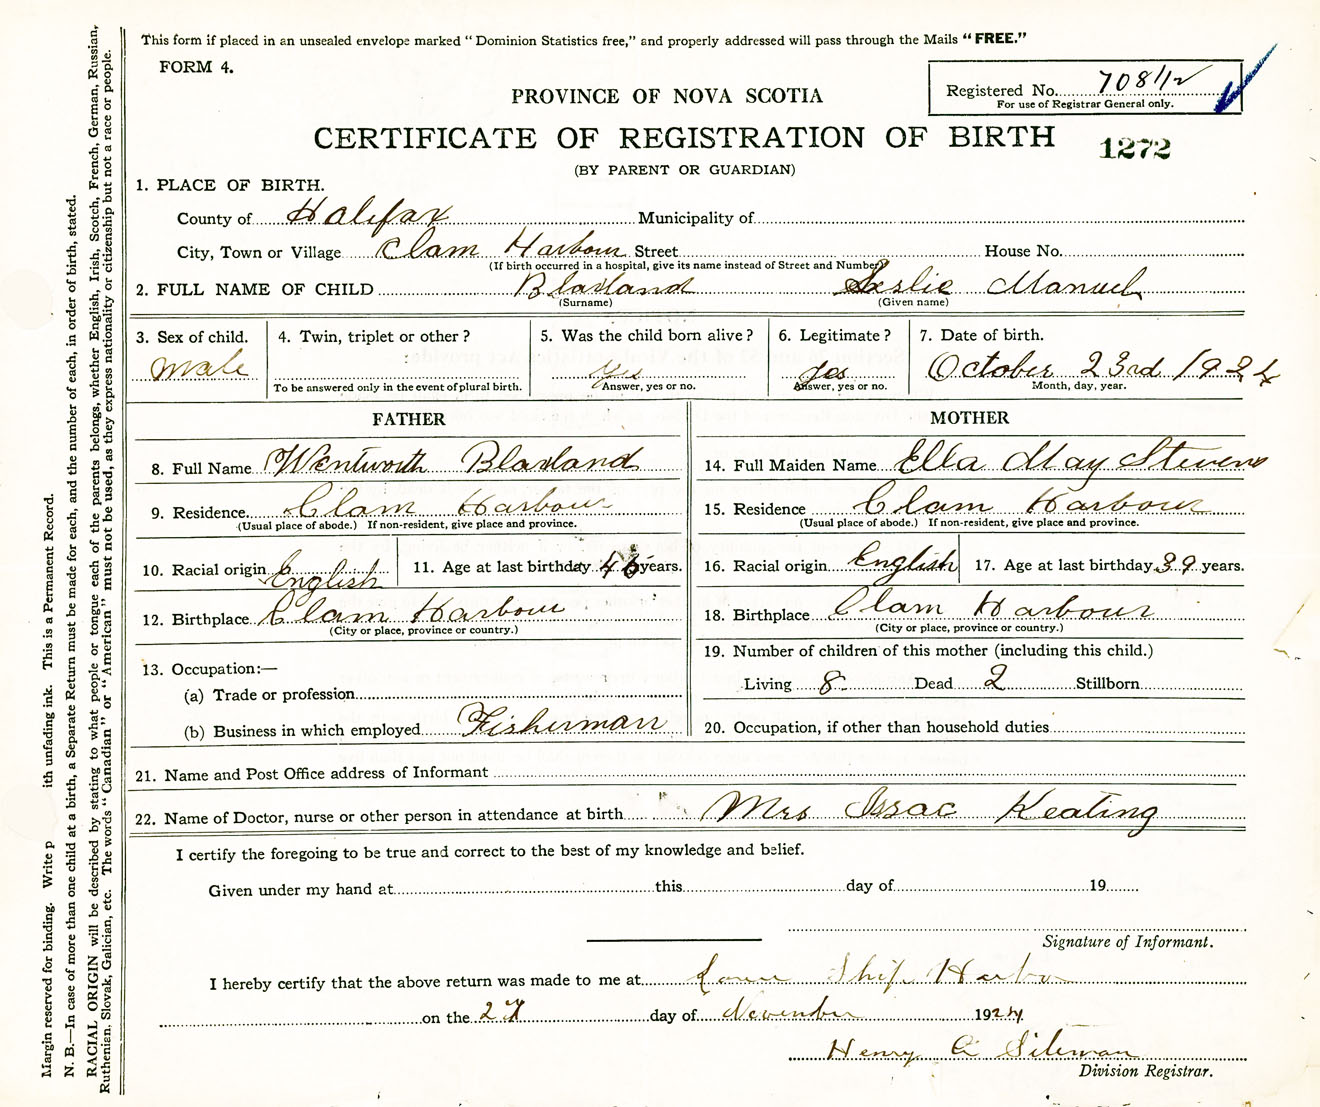 This form if placed in an unsealed envelope marked “Dominion Statistics free,” and properly addressed will pass through the Mails “FREE.”
FORM 4.
Registered No. 708112
For use of Registrar General only.
PROVINCE OF NOVA SCOTIA
CERTIFICATE OF REGISTRATION OF BIRTH 1272
(BY PARENT OR GUARDIAN)
1. PLACE OF BIRTH.
County of Halifax Municipality of
City, Town or Village Clam Harbour Street House No.
(If birth occurred in a hospital, give its name instead of Street and Number)
2. FULL NAME OF CHILD Blaxland Leslie Manuel
(Surname) (Given name)
3. Sex of child. 4. Twin, triplet or other? 5. Was the child born alive? 6. Legitimate? 7. Date of birth.
Male yes yes October 23rd 1924
To be answered only in the event of plural birth. Answer, yes or no. Answer, yes or no. Month, day, year.
FATHER MOTHER
8. Full Name Wentworth Blaxland 14. Full Maiden Name Ella May Stevens
9. Residence Clam Harbour 15. Residence Clam Harbour
(Usual place of abode.) If non-resident, give place and province. (Usual place of abode.) If non-resident, give place and province.
10. Racial origin English 11. Age at last birthday years. 16. Racial origin English 17. Age at last birthday 39 years.
12. Birthplace Clam Harbour 18. Birthplace Clam Harbour
(City or place, province or country.) (City or place, province or country.)
13. Occupation:— 19. Number of children of this mother (including this child.)
(a) Trade or profession Living 8 Dead 2 Stillborn
(b) Business in which employed Fisherman 20. Occupation, if other than household duties
21. Name and Post Office address of Informant
22. Name of Doctor, nurse or other person in attendance at birth Mrs Issac Keating
I certify the foregoing to be true and correct to the best of my knowledge and belief.
Given under my hand at this day of 19
Signature of Informant.
I hereby certify that the above return was made to me at Lower Ship Harbor
on the 27 day of November 1924
Henry A Siteman
Division Registrar.
Margin reserved for binding. Write p ith unfading ink. This is a Permanent Record.
N. B.—In case of more than one child at a birth, a Separate Return must be made for each, and the number of each, in order of birth, stated.
RACIAL ORIGIN will be described by stating to what people or tongue each of the parents belongs, whether English, Irish, Scotch, French, German, Russian,
Ruthenian, Slovak, Galician, etc. The words “Canadian” or “American” must not be used, as they express nationality or citizenship but not a race or people.